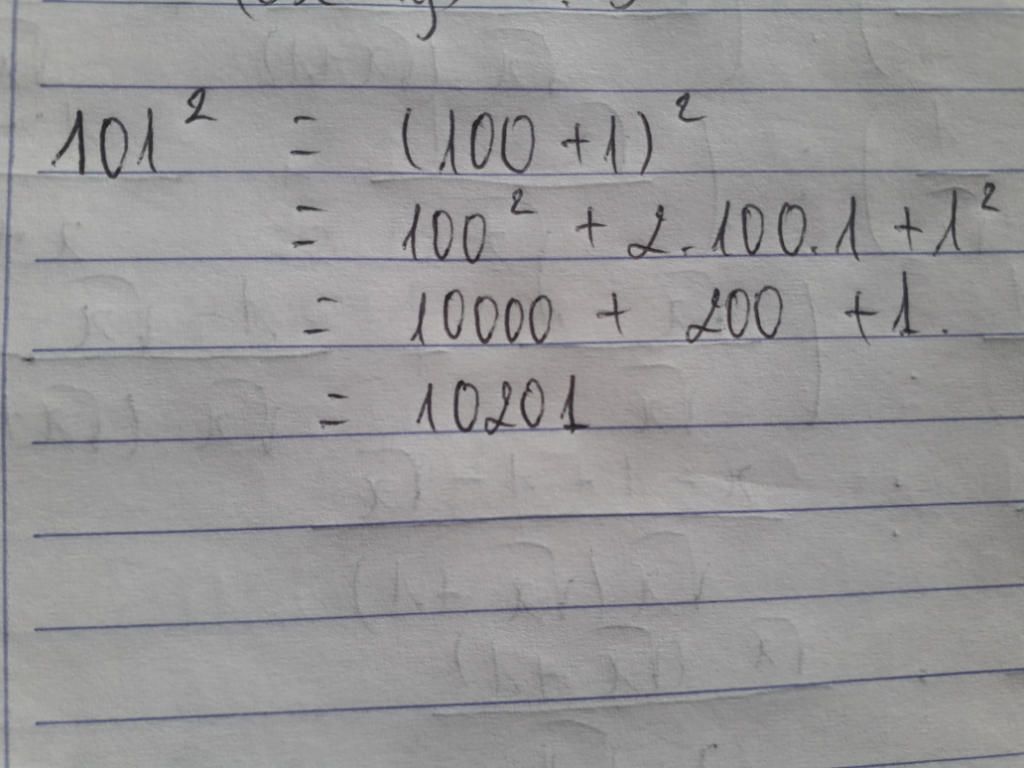 101² = (100 + 1)²
= 100² + 2.100.1 + 1²
= 10000 + 200 + 1.
= 10201